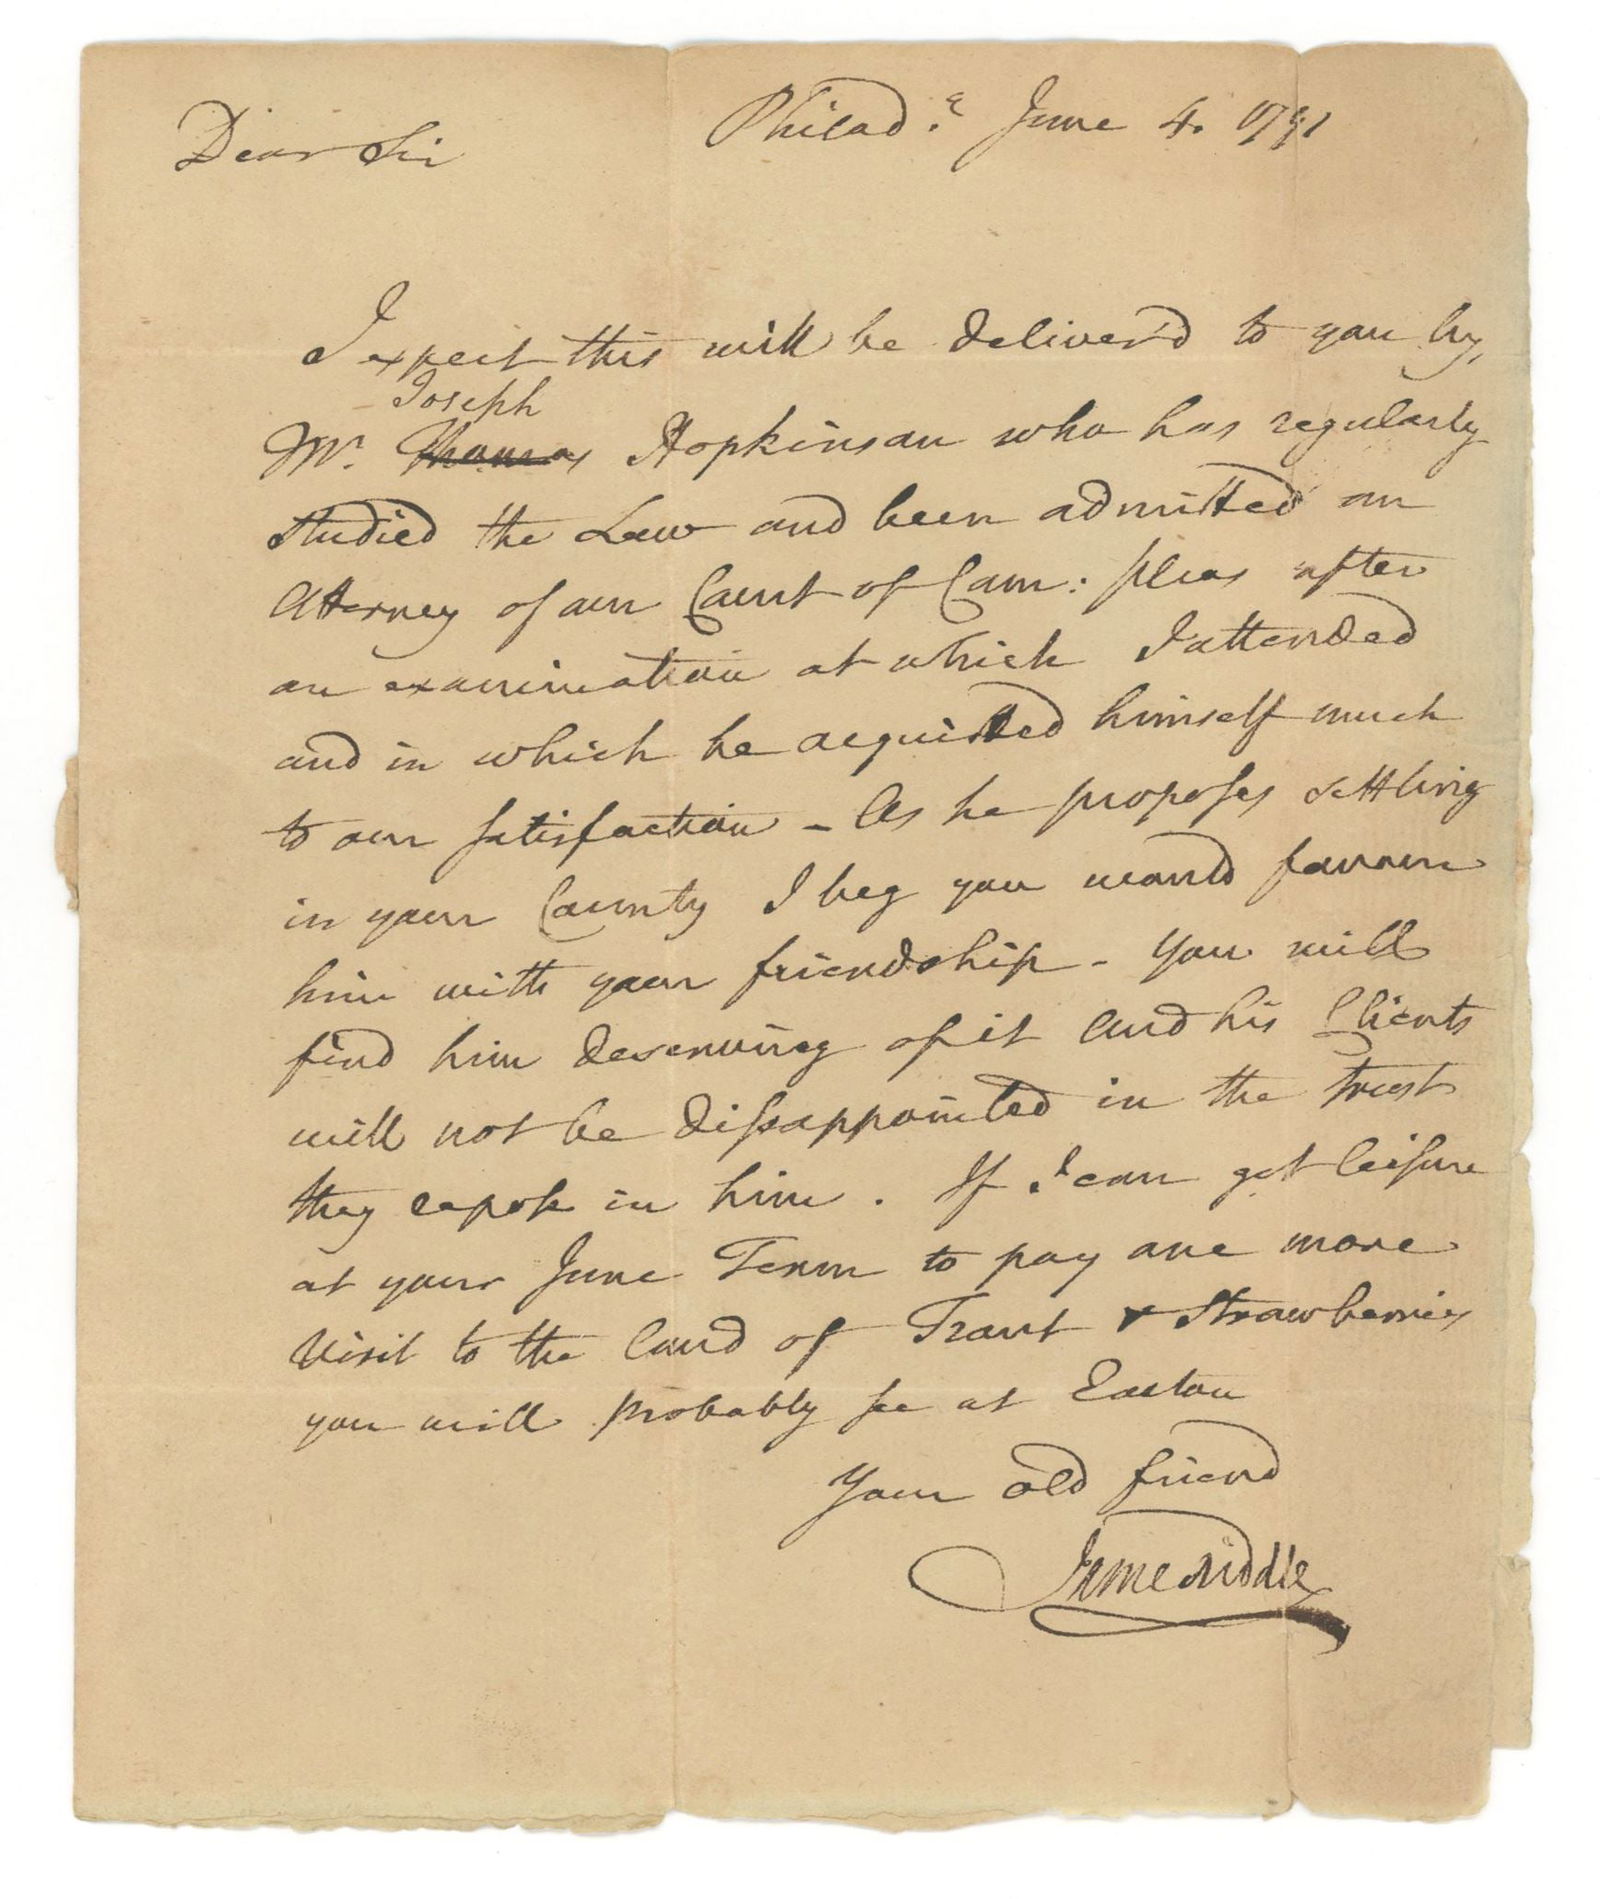 Philad.ª June 4. 1791
Dear Sir
I expect this will be deliver'd to you by
Joseph
Mr. Thomas Hopkinson who has regularly
studied the Law and been admitted an
Attorney of our Court of Com: pleas after
an examination at which I attended
and in which he acquitted himself much
to our satisfaction – As he proposes settling
in your County I beg you would favour
him with your friendship – You will
find him deserving of it and his Clients
will not be dissappointed in the trust
they repose in him. If I can get leisure
at your June Term to pay one more
visit to the land of Trout & Strawberries
you will probably see at Easton
Your old friend
Biddle